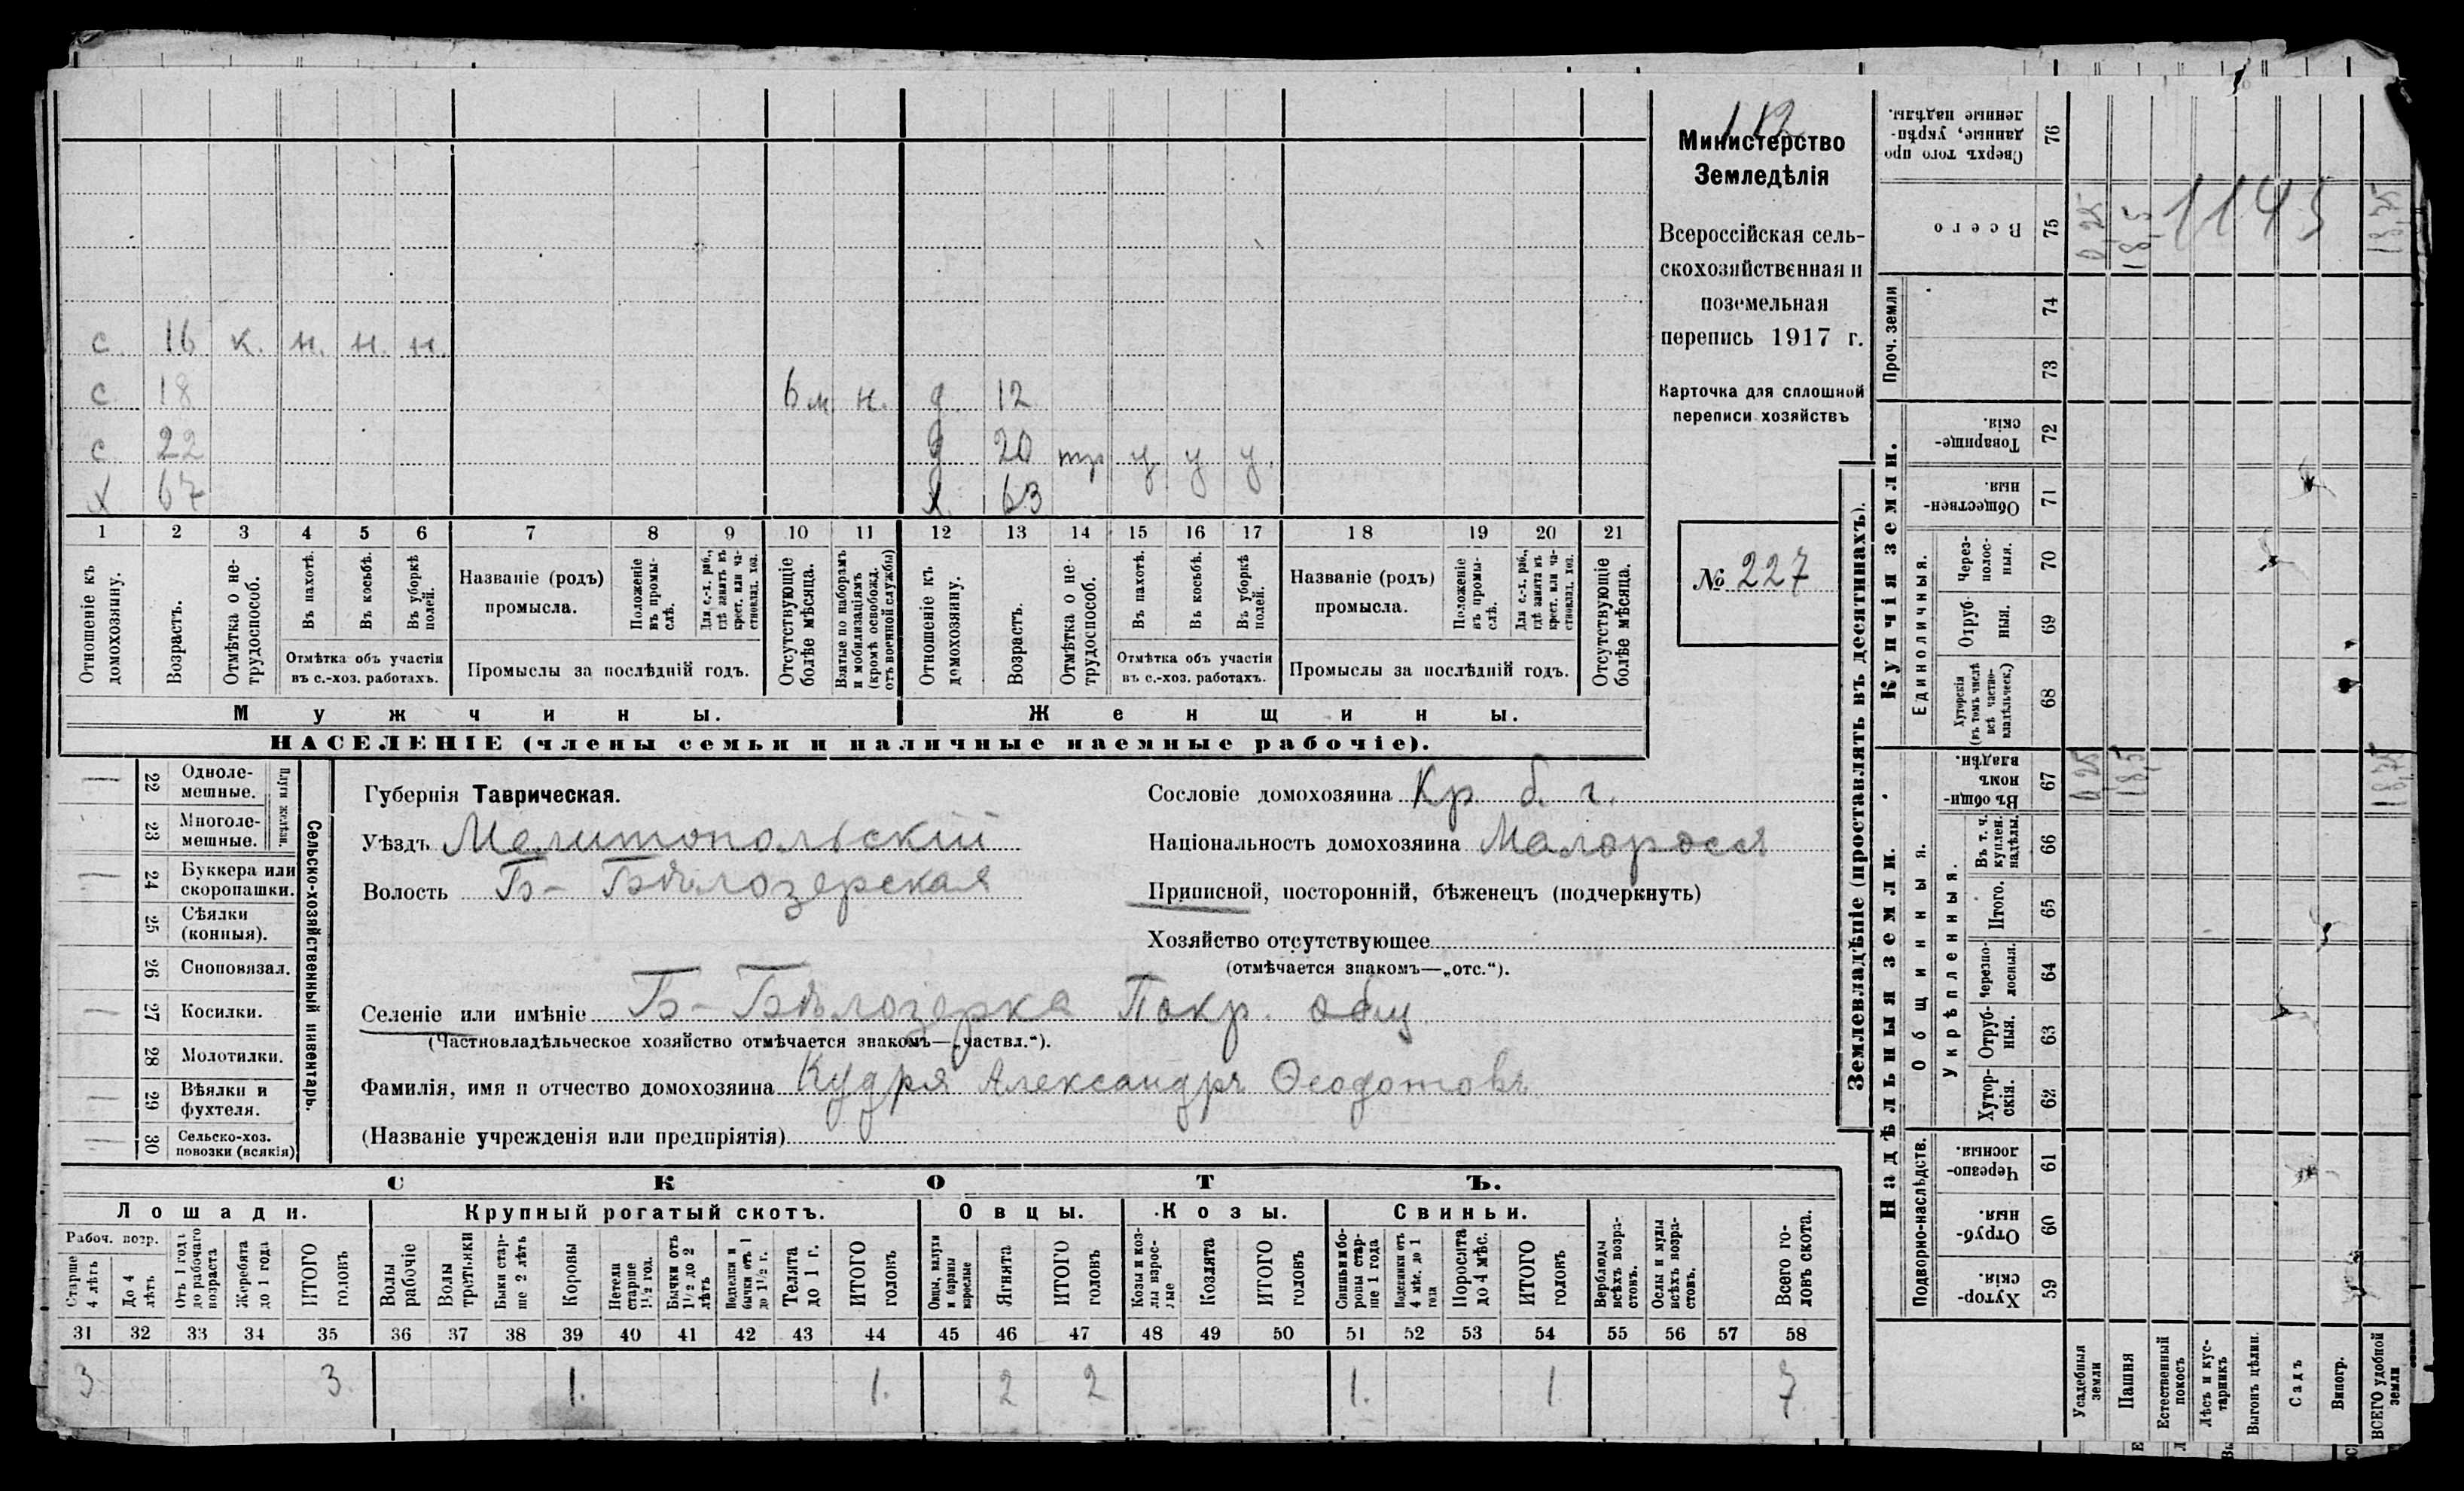 112
Министерство
Земледѣлія
Всероссійская сель-
скохозяйственная и
поземельная
перепись 1917 г.
Карточка для сплошной
переписи хозяйствъ
№ 227
с. 16 к. н. н. н.
с 18 6 м н. д. 12
с 22 д 20 тр у у у.
х 67 х. 63
1 2 3 4 5 6 7 8 9 10 11 12 13 14 15 16 17 18 19 20 21
Отношеніе къ домохозяину.
Возрастъ.
Отмѣтка о не-трудоспособ.
Въ пахотѣ.
Въ косьбѣ.
Въ уборкѣ полей.
Отмѣтка объ участіи
въ с.-хоз. работахъ.
Названіе (родъ)
промысла.
Положеніе въ промы-слѣ.
Для с.-х. раб., гдѣ занятъ въ крест. или ча-стновлад. хоз.
Промыслы за послѣдній годъ.
Отсутствующіе болѣе мѣсяца.
Взятые по наборамъ и мобилизаціямъ (кромѣ освобожд. отъ военной службы)
Отношеніе къ домохозяину.
Возрастъ.
Отмѣтка о не-трудоспособ.
Въ пахотѣ.
Въ косьбѣ.
Въ уборкѣ полей.
Отмѣтка объ участіи
въ с.-хоз. работахъ.
Названіе (родъ)
промысла.
Положеніе въ промы-слѣ.
Для с.-х. раб., гдѣ занята въ крест. или ча-стновлад. хоз.
Промыслы за послѣдній годъ.
Отсутствующіе болѣе мѣсяца.
Мужчины. Женщины.
НАСЕЛЕНІЕ (члены семьи и наличные наемные рабочіе).
Сельско-хозяйственный инвентарь.
Плуги желѣзн.
— 22 Одноле-мешные.
— 23 Многоле-мешные.
— 24 Буккера или скоропашки.
— 25 Сѣялки (конныя).
26 Сноповязал.
— 27 Косилки.
28 Молотилки.
— 29 Вѣялки и фухтеля.
— 30 Сельско-хоз. повозки (всякія)
Губернія Таврическая.
Уѣздъ Мелитопольскій
Волость Б-Бѣлозерская
Сословіе домохозяина Кр. б. г.
Національность домохозяина Малороссъ
Приписной, посторонній, бѣженец (подчеркнуть)
Хозяйство отсутствующее
(отмѣчается знакомъ—„отс.“).
Селеніе или имѣніе Б-Бѣлозерка Покр. общ
(Частновладѣльческое хозяйство отмѣчается знакомъ—„частвл.“).
Фамилія, имя и отчество домохозяина Кудря Александръ Ѳеодотовъ
(Названіе учрежденія или предпріятія)
СКОТЪ.
Лошади. Крупный рогатый скотъ. Овцы. Козы. Свиньи.
Рабоч. возр.
Старше 4 лѣтъ
До 4 лѣтъ
Отъ 1 года до рабочаго возраста
Жеребята до 1 года
ИТОГО головъ
Волы рабочіе
Волы третьяки
Быки стар-ше 2 лѣтъ
Коровы
Нетели старше 1½ год.
Бычки отъ 1½ до 2 лѣтъ
Подтелки и бычки отъ 1 до 1½ г.
Телята до 1 г.
ИТОГО головъ
Овцы, валухи и бараны взрослые
Ягнята
ИТОГО головъ
Козы и коз-лы взрос-лые
Козлята
ИТОГО головъ
Свиньи и бо-ровы стар-ше 1 года
Подсвинки отъ 4 мѣс. до 1 года
Поросята до 4 мѣс.
ИТОГО головъ
Верблюды всѣхъ возра-стовъ.
Ослы и мулы всѣхъ возра-стовъ.
Всего го-ловъ скота.
31 32 33 34 35 36 37 38 39 40 41 42 43 44 45 46 47 48 49 50 51 52 53 54 55 56 57 58
3 3. 1. 1. 2 2 1. 1 7
Землевладѣніе (проставлять въ десятинахъ).
Надѣльныя земли. Купчія земли. Проч. земли
Подворно-наслѣдств. Общинныя. Укрѣпленныя. Единоличныя.
76 Сверхъ того про-данные, укрѣп-ленные надѣлы.
75 Всего 0,25 18,5 18,75
1145
74
73
72 Товарище-скія.
71 Обществен-ныя.
70 Через-полос-ныя.
69 Отруб-ныя.
68 Хуторскія (въ томъ числѣ всѣ частно-владѣльческ.)
67 Въ общи-номъ владѣн. 0,25 18,5 18,75
66 Въ т. ч. куплен. надѣлы.
65 Итого.
64 Черезпо-лосныя.
63 Отруб-ныя.
62 Хутор-скія.
61 Черезпо-лосныя.
60 Отруб-ныя.
59 Хутор-скія.
Усадебныя земли
Пашня
Естественный покосъ
Лѣсъ и кус-тарникъ
Выгонъ цѣлин.
Садъ
Виногр.
ВСЕГО удобной земли